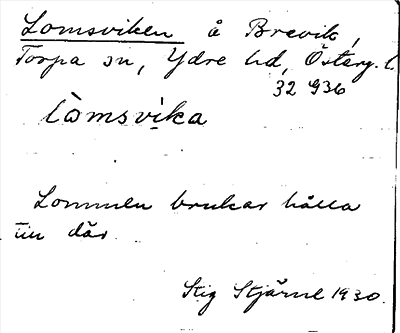 Lomsviken å Brevik,
Torpa sn, Ydre hd, Österg. l.
32 G36
Lòmsvika
Lommen brukar hålla
till där.
Stig Stjärne 1930.